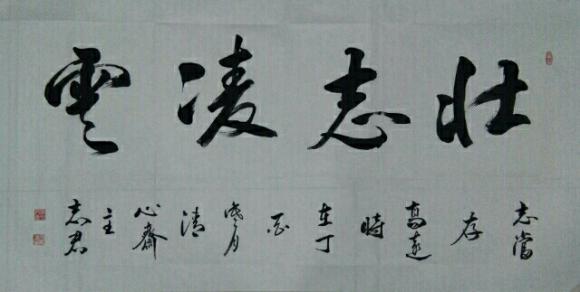 壮志凌雲
志當
存
高遠
時
在丁
酉
月
清
心齋
主
志君